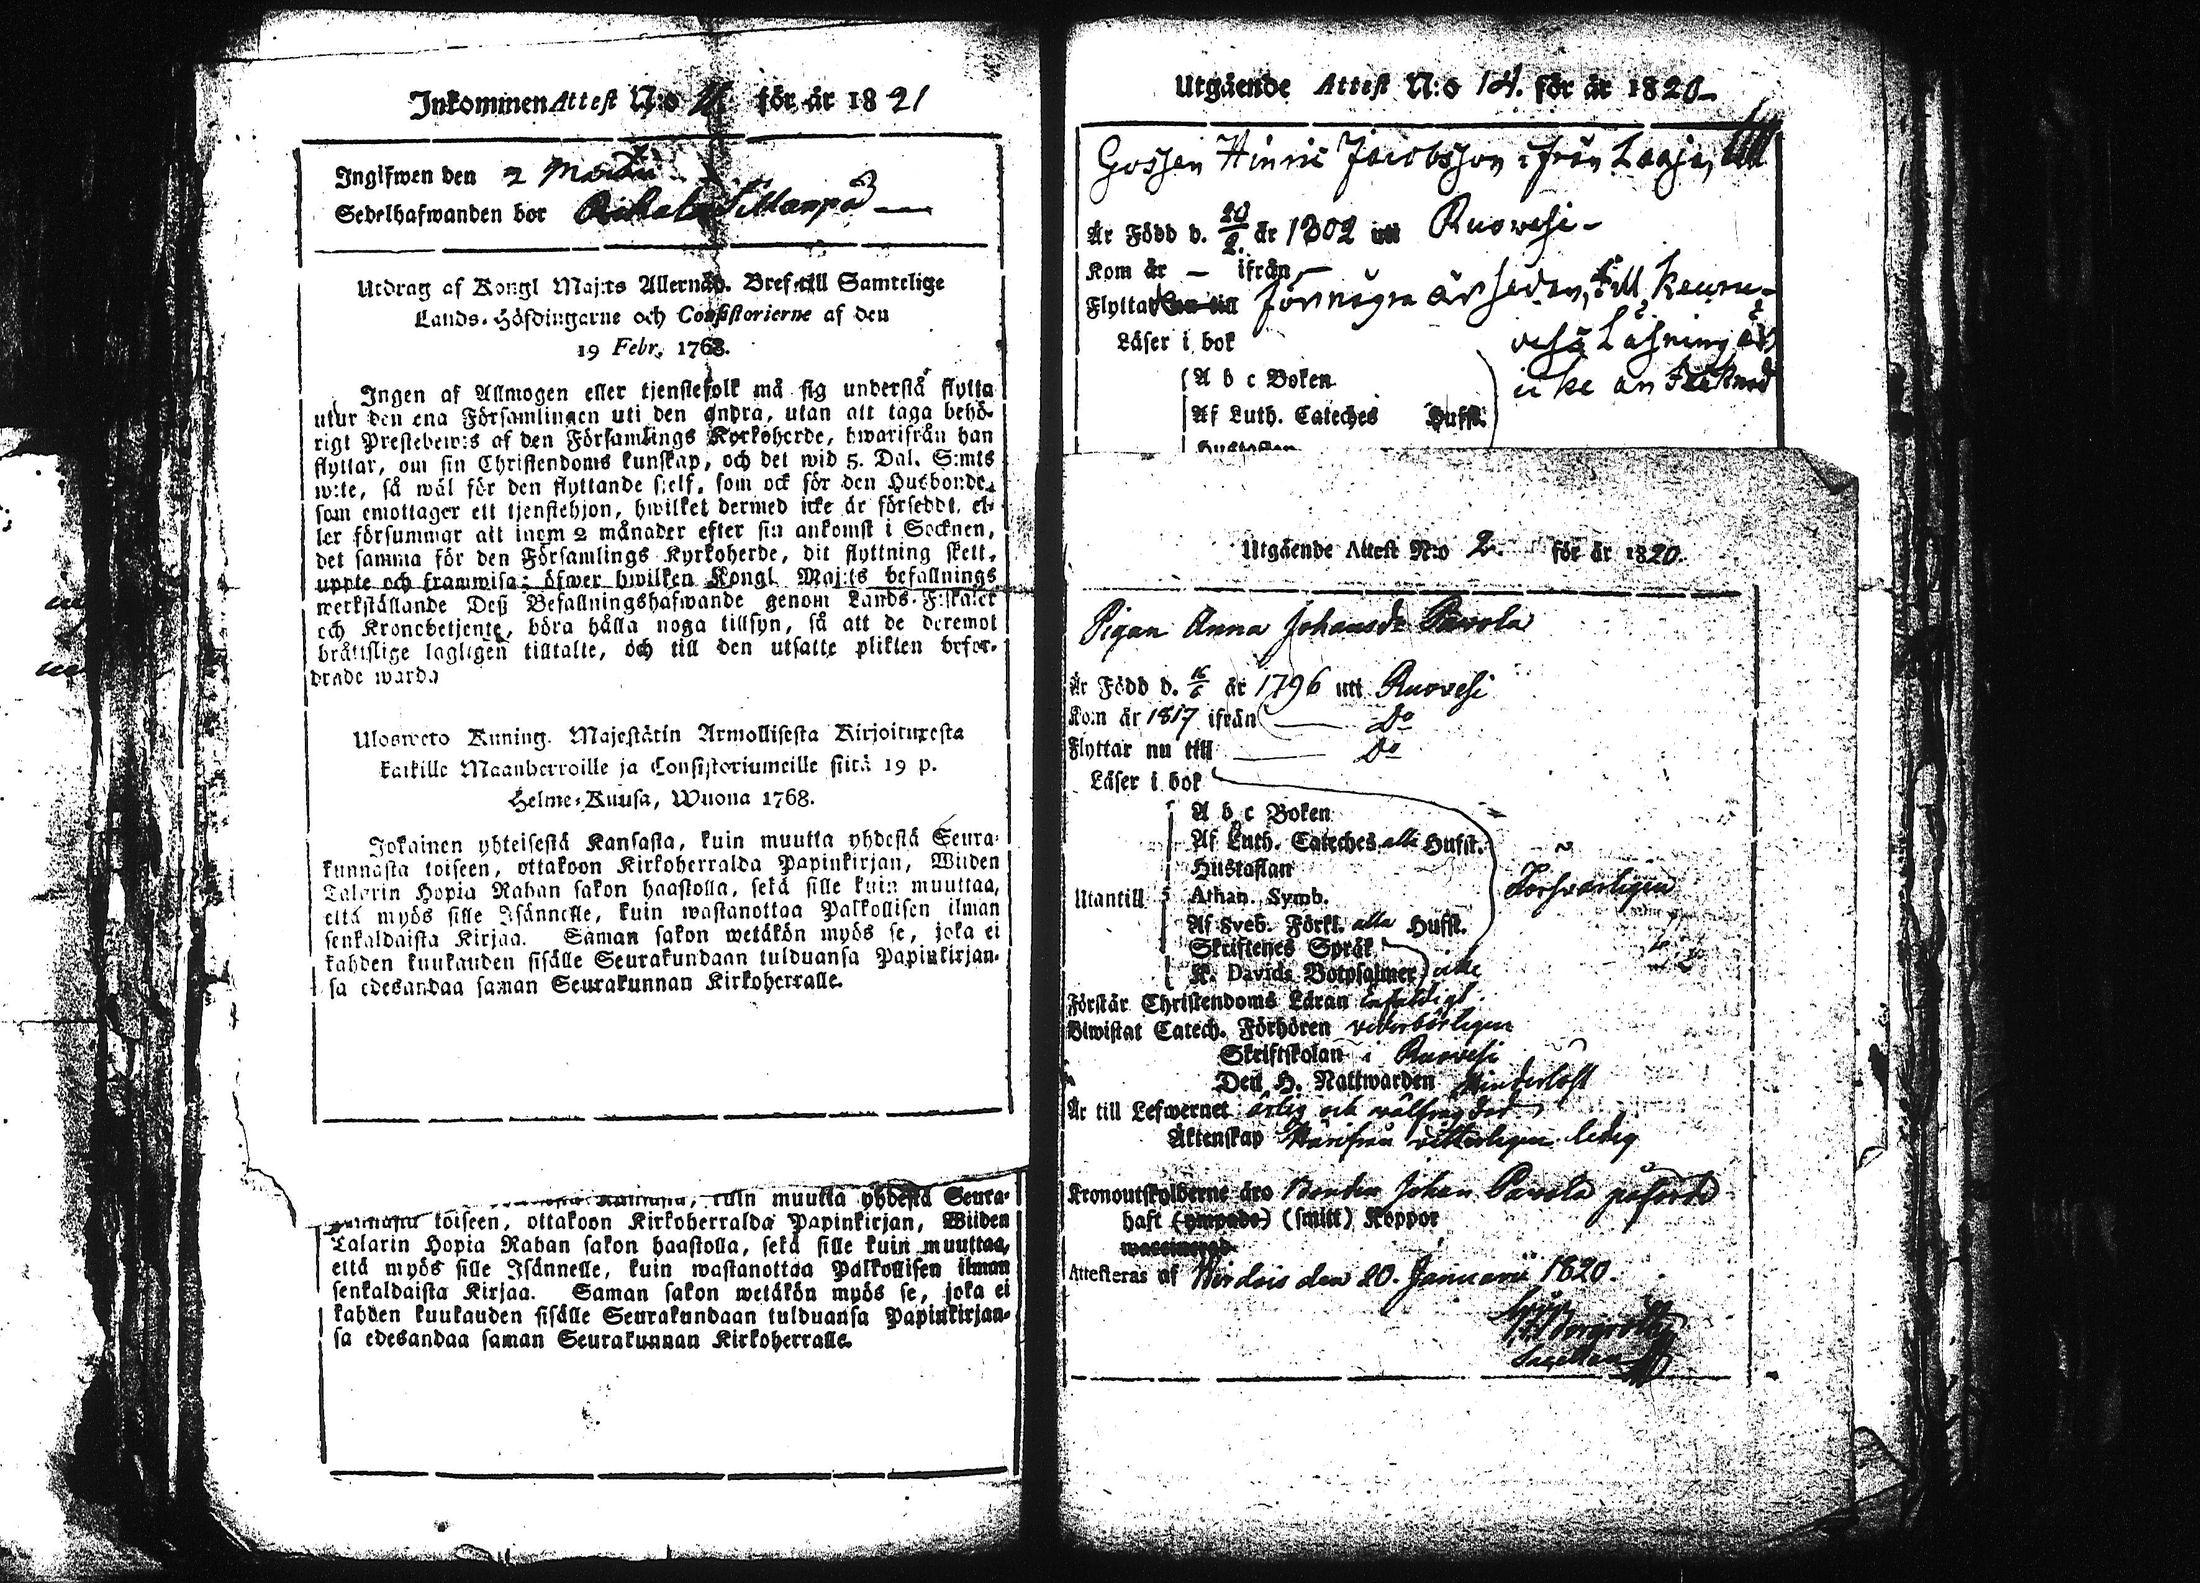 Inkommen Attest N:o för år 1821
Ingifwen den 2 Martii
Sedelhafwanden bor Sillanpää
Utdrag af Kongl Maj:ts Allernåd. Bref till Samtelige
Lands-Höfdingarne och Consistorierne af den
19 Febr. 1768.
Ingen af Allmogen eller tjenstefolk må sig understå flytta
utur den ena Församlingen uti den andra, utan att taga behö-
rigt Prestebewis af den Församlings Kyrkoherde, hwarifrån han
flyttar, om sin Christendoms kunskap, och det wid 5. Dal. S:mts
wite, så wäl för den flyttande sielf, som ock för den Husbonde,
som emottager ett tjenstehjon, hwilket dermed icke är försedt, el-
ler försummar att inom 2 månader efter sin ankomst i Socknen,
det samma för den Församlings Kyrkoherde, dit flyttning skett,
uppte och framwisa; öfwer hwilken Kongl Maj:ts befallnings
werkställande Deß Befallningshafwande genom Lands-Fiskaler
och Kronobetjente, böra hålla noga tillsyn, så att de deremot
bråttslige lagligen tilltalte, och till den utsatte plikten befor-
drade warda
Ulosweto Kuning. Majestätin Armollisesta Kirjoituxesta
kaikille Maanherroille ja Consistoriumeille siitä 19 p.
Helme-Kuusa, Wuona 1768.
Jokainen yhteisestä Kansasta, kuin muutta yhdestä Seura-
kunnasta toiseen, ottakoon Kirkoherralda Papinkirjan, Wiiden
Talarin Hopia Rahan sakon haastolla, sekä sille kuin muuttaa,
että myös sille Isännelle, kuin wastanottaa Palkollisen ilman
senkaldaista Kirjaa. Saman sakon wetäkön myös se, joka ei
kahden kuukauden sisälle Seurakundaan tulduansa Papinkirjan-
sa edesandaa saman Seurakunnan Kirkoherralle.
kuin muutta yhdestä Seura-
kunnasta toiseen, ottakoon Kirkoherralda Papinkirjan, Wiiden
Talarin Hopia Rahan sakon haastolla, sekä sille kuin muuttaa,
että myös sille Isännelle, kuin wastanottaa Palkollisen ilman
senkaldaista Kirjaa. Saman sakon wetäkön myös se, joka ei
kahden kuukauden sisälle Seurakundaan tulduansa Papinkirjan-
sa edesandaa saman Seurakunnan Kirkoherralle.
Utgående Attest N:o 14. för år 1820
Gossen Hinric Jacobsson ifrån Laaja, till
Är Född d. 20/2 år 1802 uti Ruovesi
Kom år — ifrån —
Flyttat för några år sedan, till Keuru-
Läser i bok
vesi Läsning är
A b c Boken
icke antecknad
Af Luth. Cateches Hufst.
Hustaflan
Utgående Attest N:o 2. för år 1820.
Pigan Anna Johansdr Pavola
Är Född d. år 1796 uti Ruovesi
Kom år 1817 ifrån — Do
Flyttar nu till — Do
Läser i bok
A b c Boken
Af Luth. Cateches alla Hufst.
Hustaflan
Utantill Athan. Symb.
Försvarligen
Af Sveb. Förkl. alla Hufst.
Skriftenes Språk
K. Davids Botpsalmer icke
Förstår Christendoms Läran enfaldigt
Biwistat Catech. Förhören vederbörligen
Skriftskolan i Ruovesi
Den H. Nattwarden hinderlöst
Är till Lefwernet ärlig och välfrägdad
Äktenskap Härifrån vitterligen ledig
Kronoutskylderne äro Bonden Johan Pavola påförde
haft (ympade) (smitt) Koppor
Attesteras af Wirdois den 20. Januarii 1820.
Sacellan